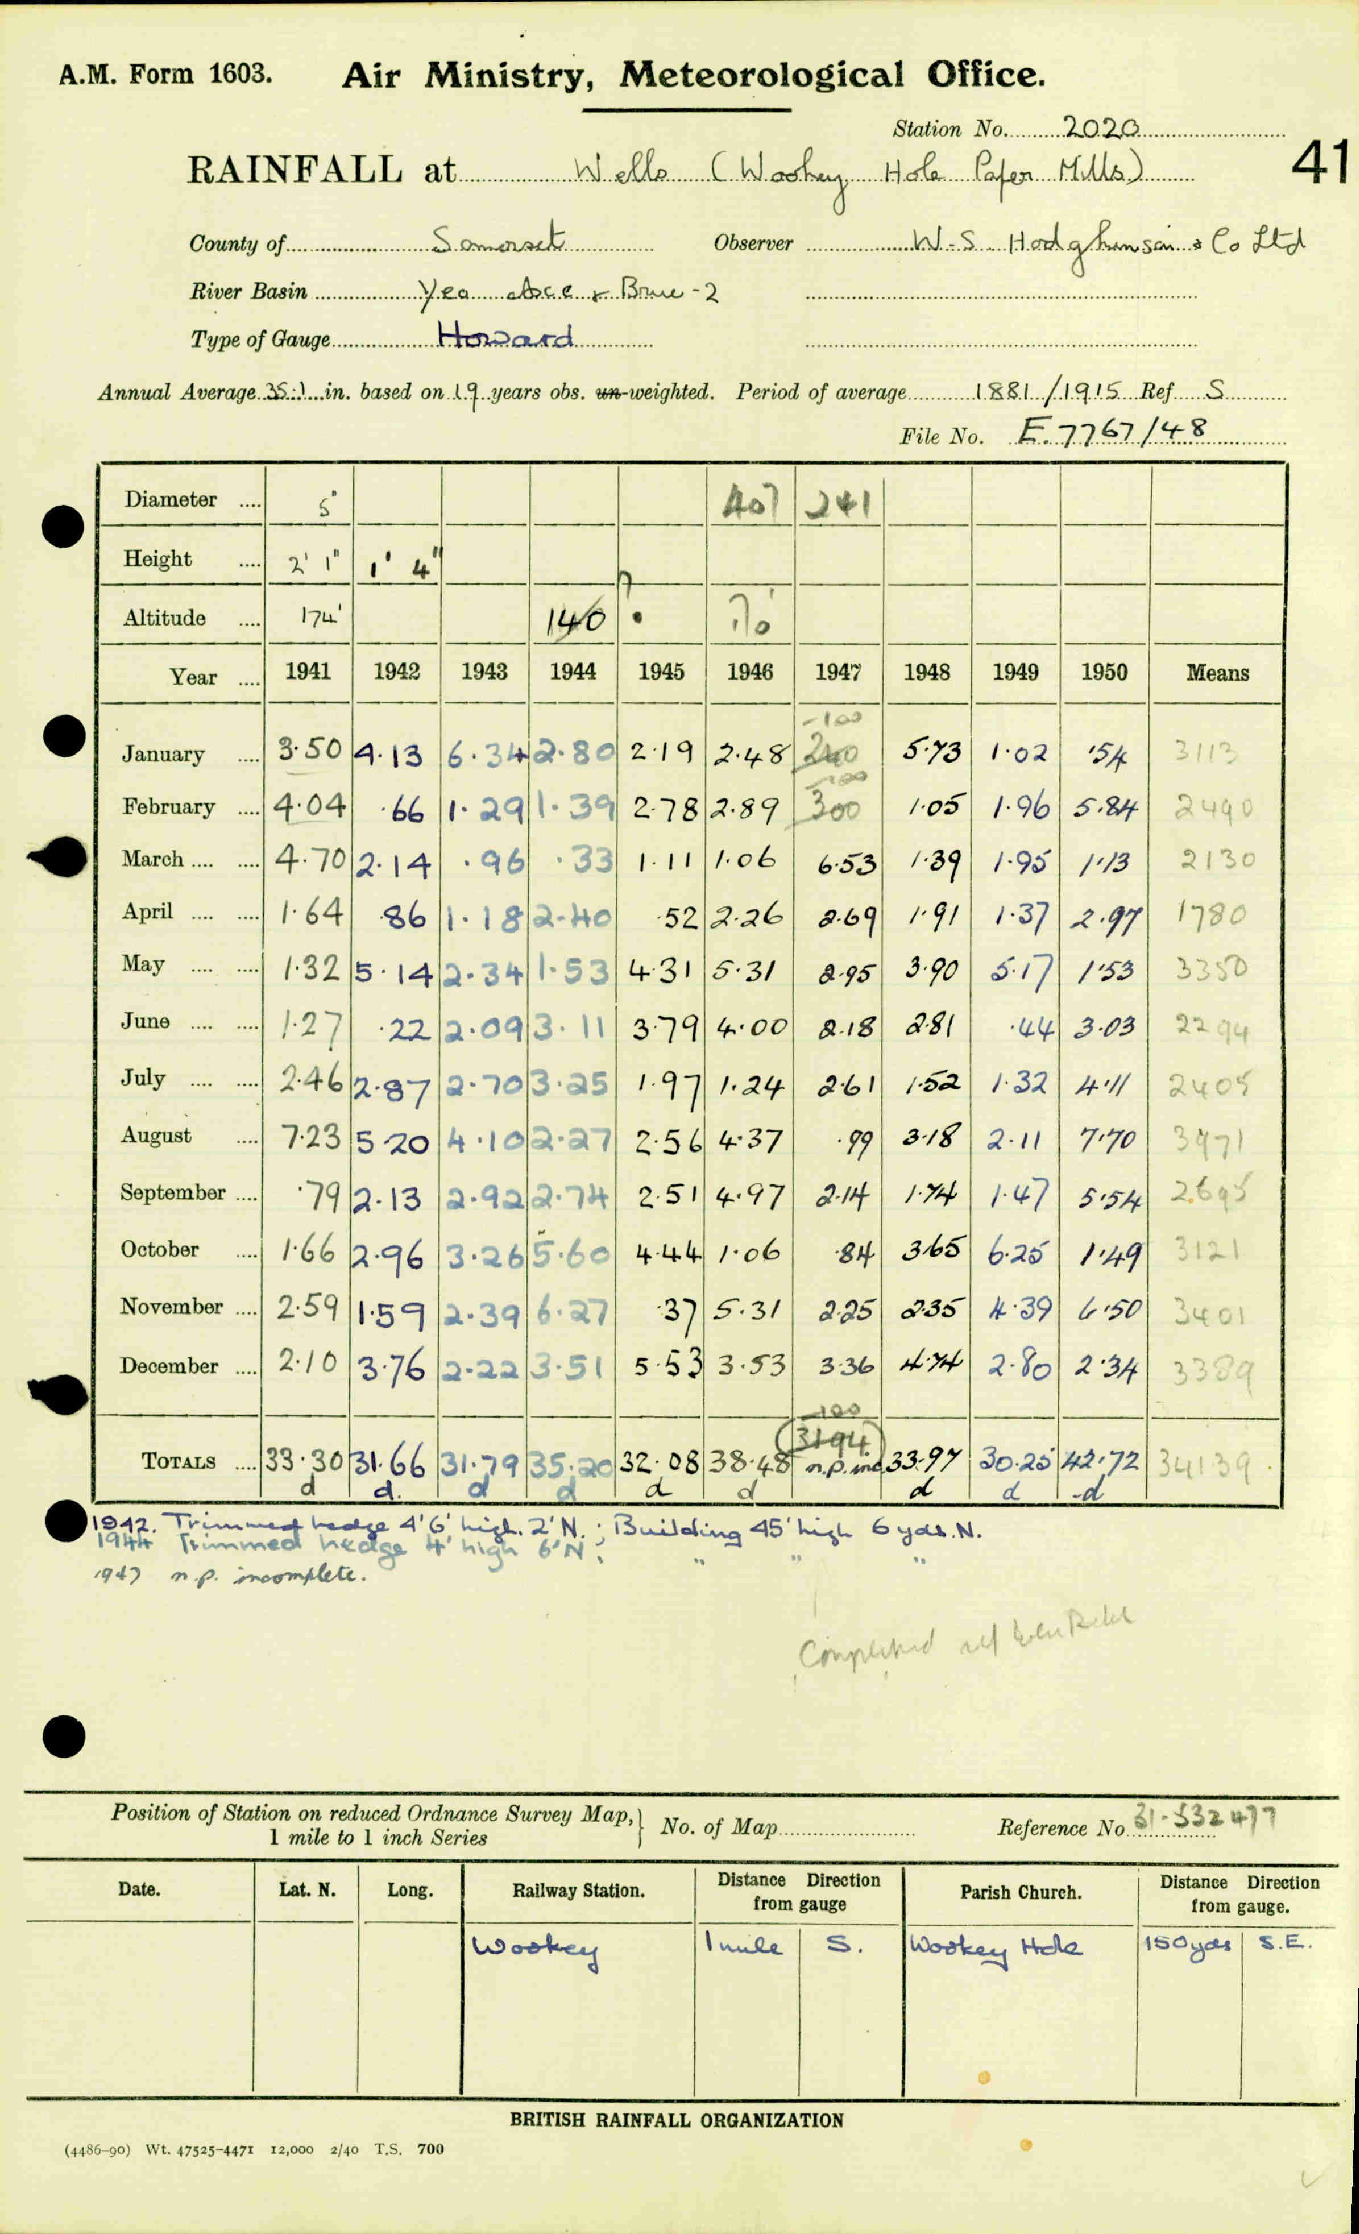 A.M. Form 1603. Air Ministry, Meteorological Office.
Station No. 2020
41
RAINFALL at Wells (Wookey Hole Paper Mills)
County of Somerset Observer W.S. Hodgkinson & Co Ltd
River Basin Yeo Axe & Brue - 2
Type of Gauge Howard
Annual Average 35.1 in. based on 19 years obs. un-weighted. Period of average 1881/1915 Ref S
File No. E.7767/48
Diameter .... 5" 407 241
Height .... 2' 1" 1' 4"
Altitude .... 174' 140 ? 170'
Year .... 1941 1942 1943 1944 1945 1946 1947 1948 1949 1950 Means
-100
January .... 3.50 4.13 6.34 2.80 2.19 2.48 240 5.73 1.02 .54 3113
-100
February .... 4.04 .66 1.29 1.39 2.78 2.89 300 1.05 1.96 5.84 2490
March .... .... 4.70 2.14 .96 .33 1.11 1.06 6.53 1.39 1.95 1.13 2130
April .... .... 1.64 .86 1.18 2.40 .52 2.26 2.69 1.91 1.37 2.97 1780
May .... .... 1.32 5.14 2.34 1.53 4.31 5.31 2.95 3.90 5.17 1.53 3350
June .... .... 1.27 .22 2.09 3.11 3.79 4.00 2.18 2.81 .44 3.03 2294
July .... .... 2.46 2.87 2.70 3.25 1.97 1.24 2.61 1.52 1.32 4.11 2405
August .... 7.23 5.20 4.10 2.27 2.56 4.37 .99 3.18 2.11 7.70 3971
September .... .79 2.13 2.92 2.74 2.51 4.97 2.14 1.74 1.47 5.54 2695
October .... 1.66 2.96 3.26 5.60 4.44 1.06 .84 3.65 6.25 1.49 3121
November .... 2.59 1.59 2.39 6.27 .37 5.31 2.25 2.35 4.39 6.50 3401
December .... 2.10 3.76 2.22 3.51 5.53 3.53 3.36 4.74 2.80 2.34 3389
-100
3194
TOTALS .... 33.30 31.66 31.79 35.20 32.08 38.48 n.p. inc 33.97 30.25 42.72 34139
d d. d d d d d d d
1942. Trimmed hedge 4'6" high. 2' N.; Building 45' high 6 yds. N.
1944 Trimmed hedge 4' high 6' N; " " "
1947 n.p. incomplete.
Completed
Position of Station on reduced Ordnance Survey Map, 1 mile to 1 inch Series } No. of Map Reference No. 31-532477
Date. Lat. N. Long. Railway Station. Distance Direction from gauge Parish Church. Distance Direction from gauge.
Wookey 1 mile S. Wookey Hole 150 yds S.E.
BRITISH RAINFALL ORGANIZATION
(4486-90) Wt. 47525-4471 12,000 2/40 T.S. 700